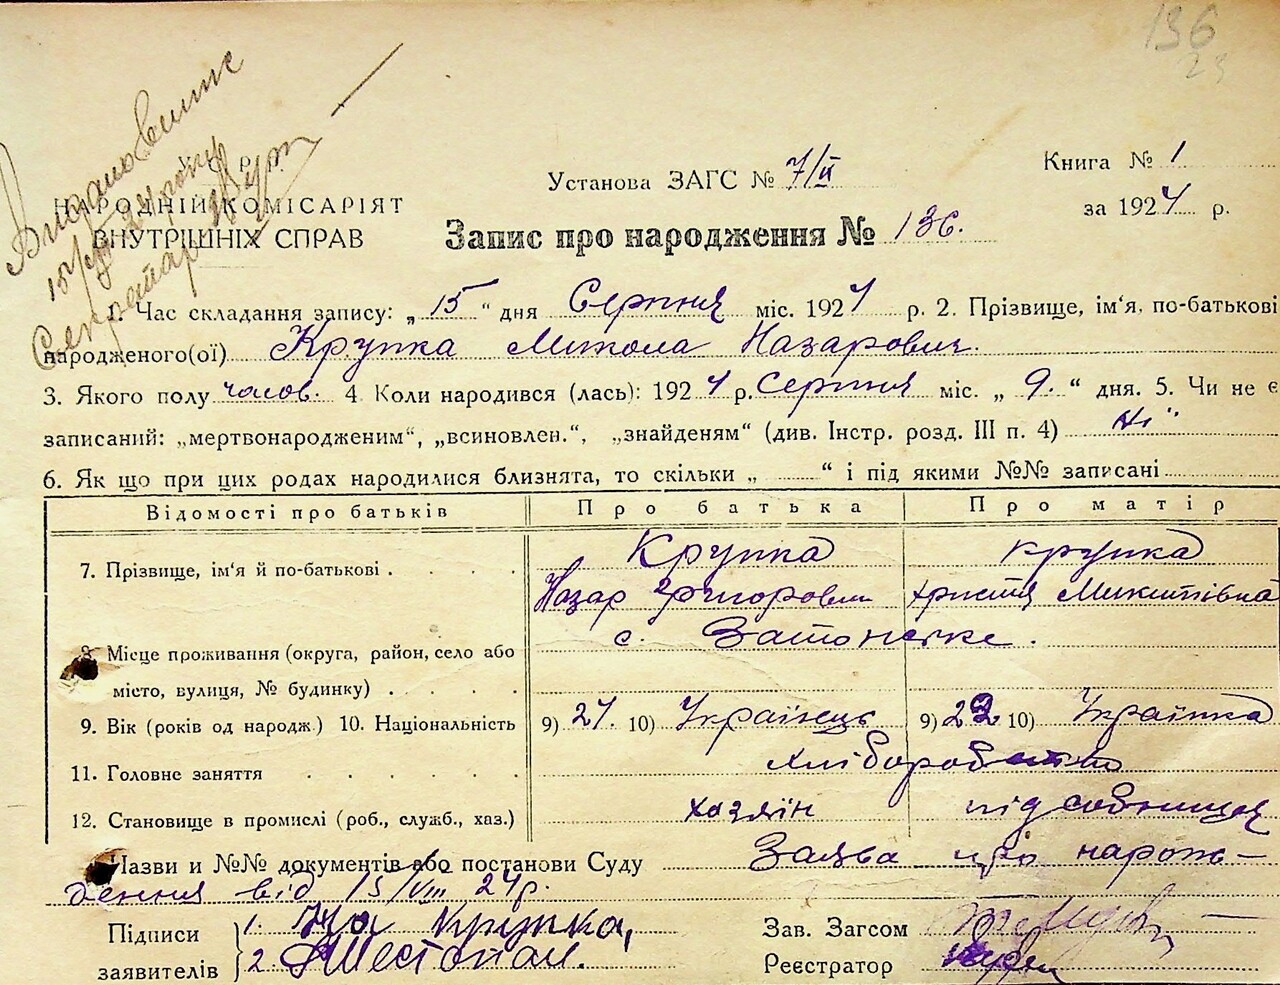 136
23
У С Р Р
НАРОДНІЙ КОМІСАРІЯТ
ВНУТРІШНІХ СПРАВ
Установа ЗАГС № 7/ІІ
Книга № 1
за 1924 р.
Запис про народження № 136.
1. Час складання запису: „15“ дня Серпня міс. 1924 р. 2. Прізвище, ім'я, по-батькові
народженого(ої) Крупка Микола Назарович.
3. Якого полу часов. 4. Коли народився (лась): 1924 р. Серпня міс. „9.“ дня. 5. Чи не є
записаний: „мертвонародженим“, „всиновлен.“, „знайденям“ (див. Інстр. розд. III п. 4) Ні"
6. Як що при цих родах народилися близнята, то скільки „ “ і під якими №№ записані
Відомості про батьків Про батька Про матір
7. Прізвище, ім'я й по-батькові . . . . Крупка Крупка
Назар Григорович Христя Микитівна
8. Місце проживання (округа, район, село або с. Затонське.
місто, вулиця, № будинку) . . . . .
9. Вік (років од народж.) 10. Національність 9) 24. 10) Українець 9) 22 10) Українка
11. Головне заняття . . . . . Хліборобство
12. Становище в промислі (роб., служб., хаз.) хазяїн підсобниця
Назви и №№ документів або постанови Суду Заява про народж-
дення від 15/VIII 24р.
Підписи 1. На Крупка,
заявителів 2. Шестопал.
Зав. Загсом
Реєстратор